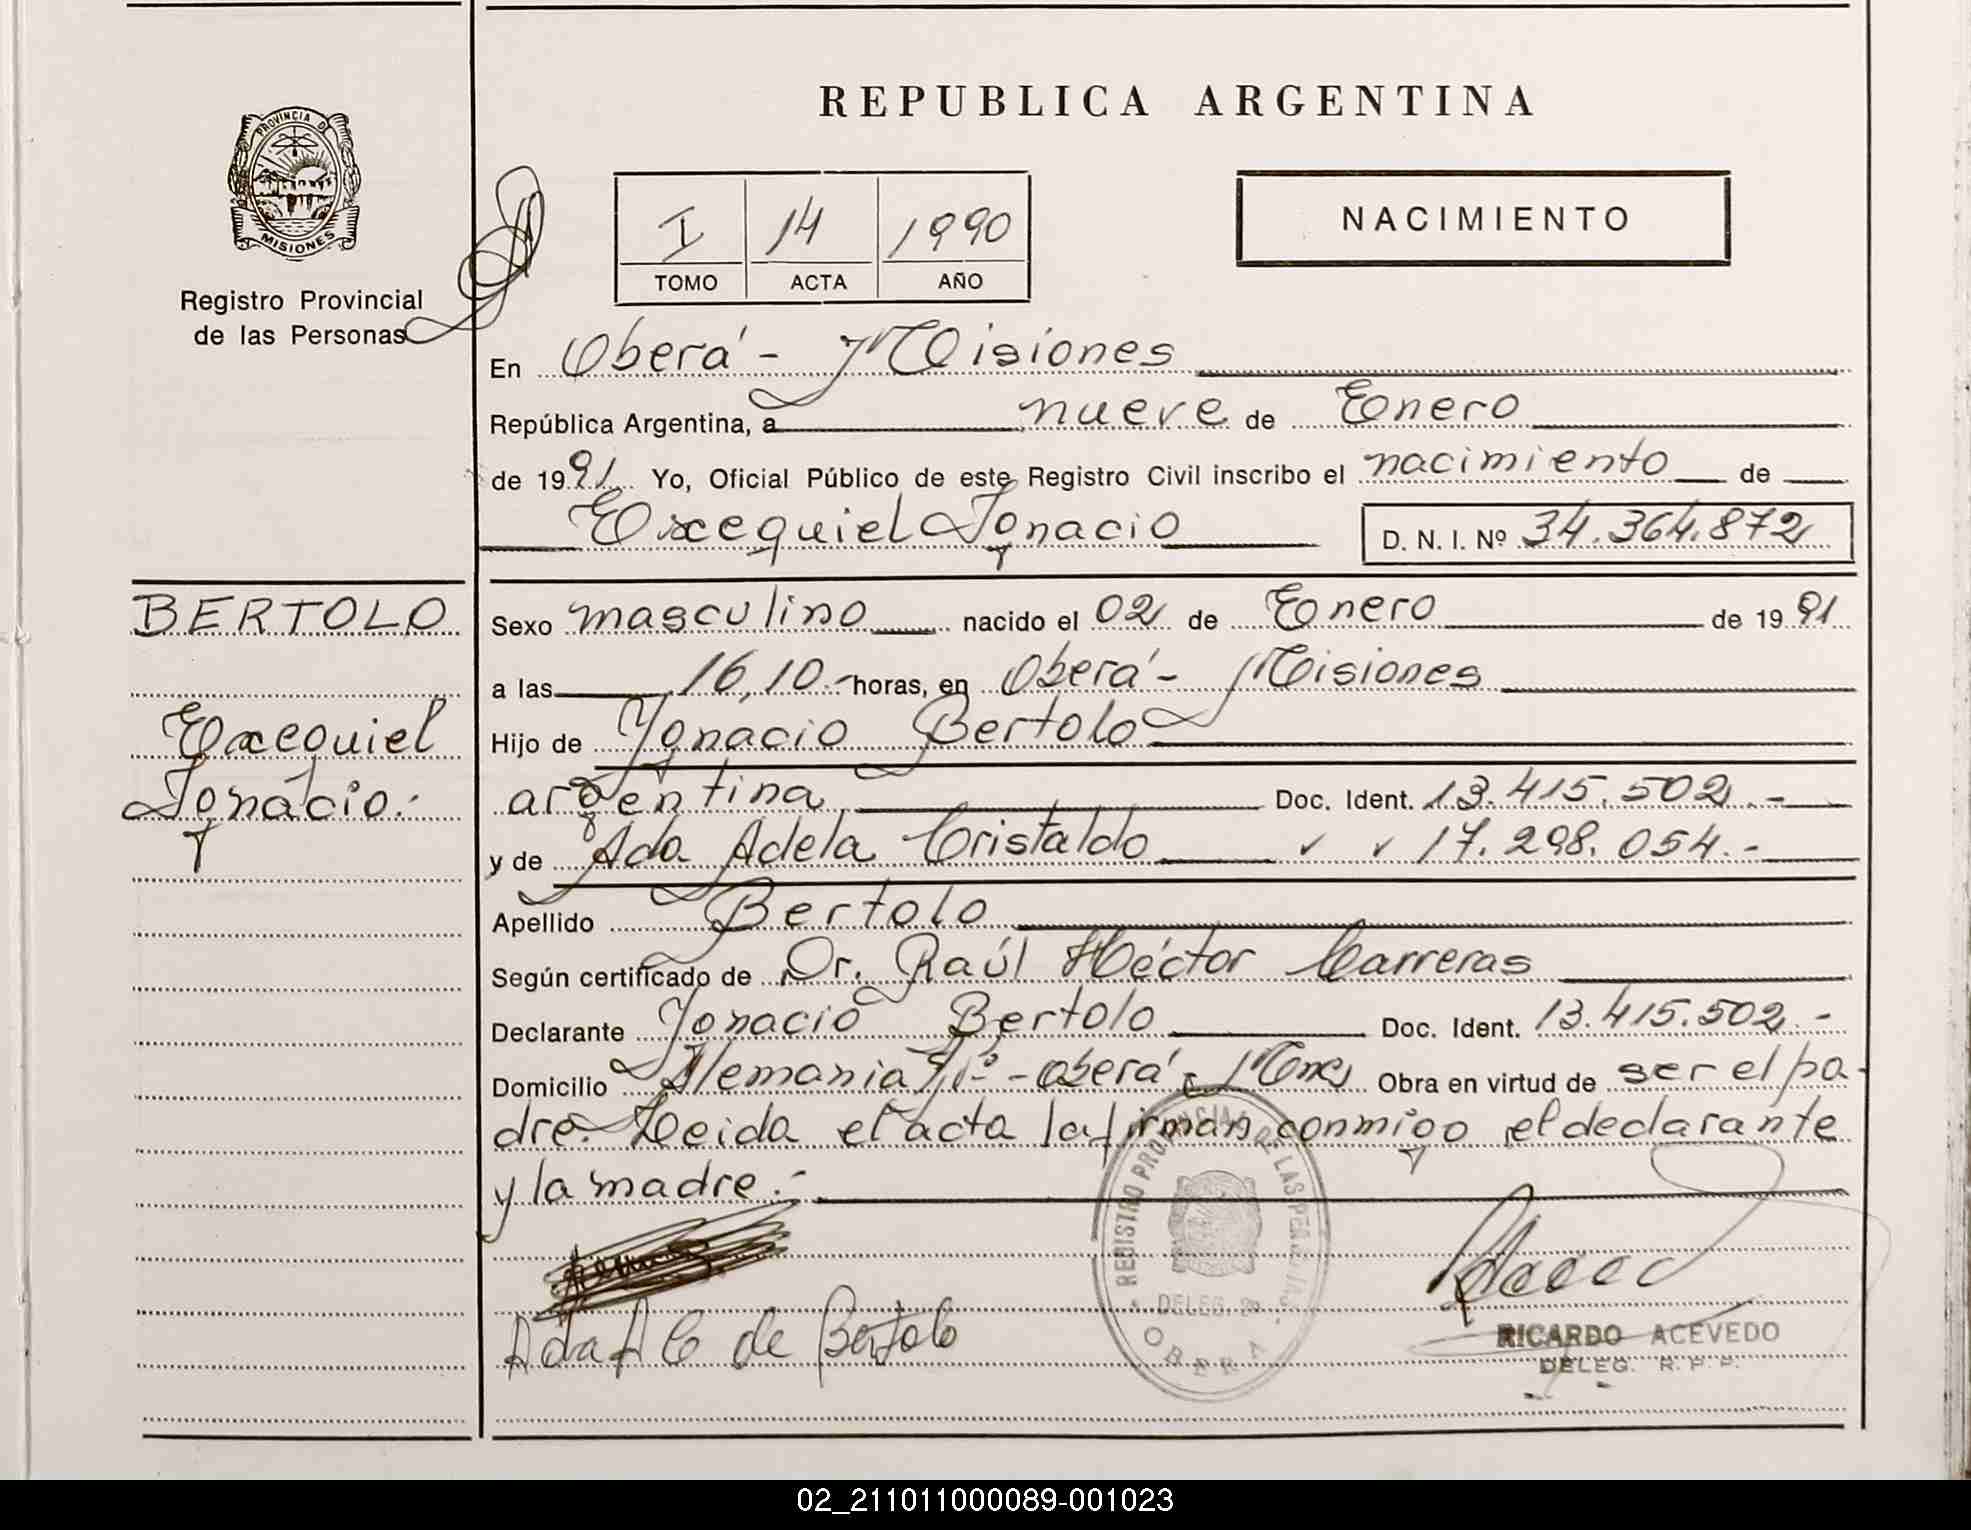 REPUBLICA ARGENTINA
PROVINCIA D
MISIONES
Registro Provincial
de las Personas
I 14 1990
TOMO ACTA AÑO
NACIMIENTO
En Oberá - Misiones
República Argentina, a nueve de Enero
de 1991 Yo, Oficial Público de este Registro Civil inscribo el nacimiento de
Exequiel Ignacio D. N. I. Nº 34.364.872
BERTOLO
Exequiel
Ignacio.-
Sexo masculino nacido el 02 de Enero de 1991
a las 16,10.- horas, en Oberá - Misiones
Hijo de Ignacio Bertolo
argentina Doc. Ident. 13.415.502.-
y de Ada Adela Cristaldo 17.298.054.-
Apellido Bertolo
Según certificado de Dr. Raúl Héctor Carreras
Declarante Ignacio Bertolo Doc. Ident. 13.415.502.-
Domicilio Alemania - Oberá - Mnes Obra en virtud de ser el pa-
dre. Leida el acta la firman conmigo el declarante
y la madre.-
Ada A C de Bertolo
REGISTRO PROVINCIAL DE LAS PERSONAS
DELEG.
OBERA
RICARDO ACEVEDO
DELEG. R. P. P.
02_211011000089-001023